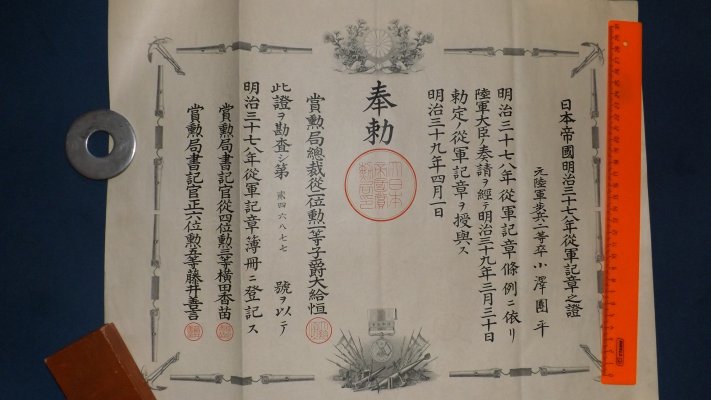 日本帝國明治三十七八年從軍記章之證
元陸軍歩兵一等卒小澤團平
明治三十七八年從軍記章條例ニ依リ
陸軍大臣ノ奏請ヲ經テ明治三十九年三月三十日
勅定ノ從軍記章ヲ授與ス
明治三十九年四月一日
奉勅
賞勲局總裁從二位勲一等子爵大給恒
此證ヲ勘査シ第 貳四六八七七 號ヲ以テ
明治三十七八年從軍記章簿冊ニ登記ス
賞勲局書記官從四位勲三等橫田香苗
賞勲局書記官正六位勲五等藤井善言